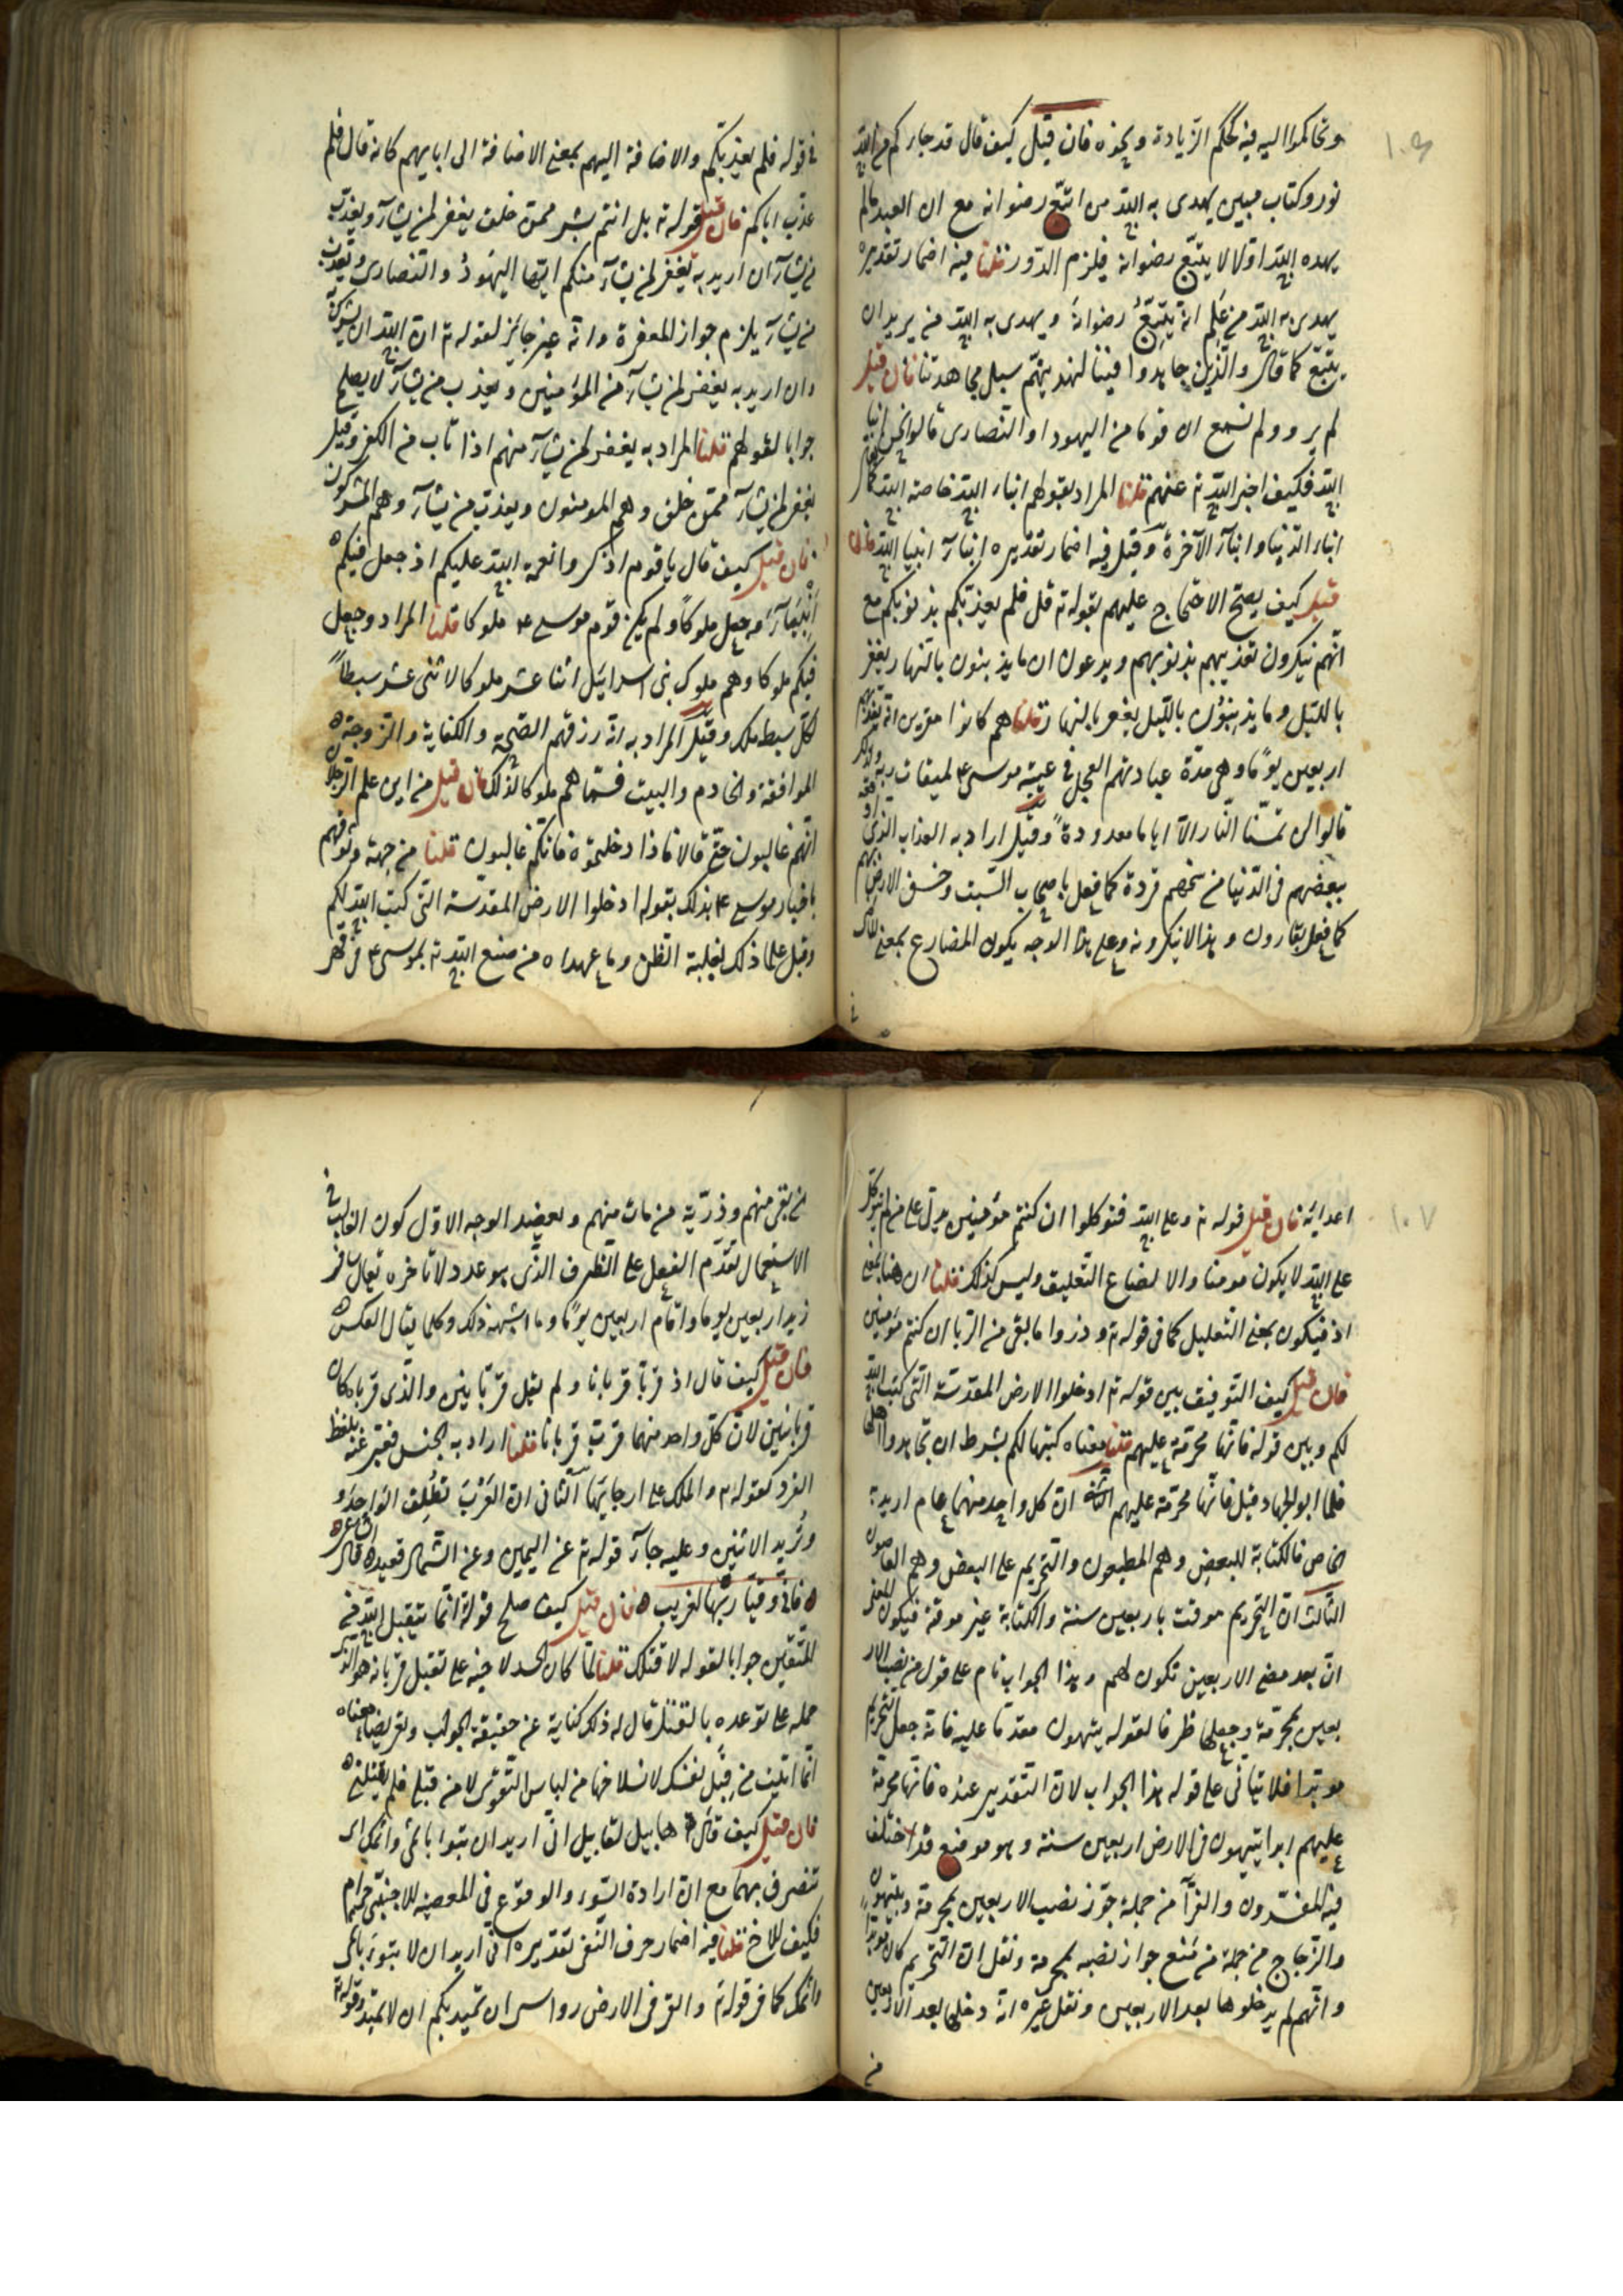 وتحاكموا اليه فيه لحكم الزيادة ونحوه فان قيل كيف قال قد جاءكم من الله
نور وكتاب مبين يهدى به الله من اتبع رضوانه مع ان العبد مالم
يهده الله اولا لا يتبع رضوانه فيلزم الدور قلنا فيه اضمار تقديره
يهدى به الله من علم انه يتبع رضوانه ويهدى به الله من يريد ان
يتبع كما قال والذين جاهدوا فينا لنهدينهم سبل مجاهدتنا فان قيل
لم يرو ولم نسمع ان قوما من اليهود او النصارى قالوا نحن ابناء
الله فكيف اخبر الله تع عنهم قلنا المراد بقولهم ابناء الله خاصة الله كما يقال
ابناء الدنيا وابناء الآخرة وقيل فيه اضمار تقديره ابناء انبيا الله فان
قيل كيف يصح الاحتجاج عليهم بقوله تع قل فلم يعذبكم بذنوبكم مع
انهم ينكرون تعذيبهم بذنوبهم ويدعون ان ما يذنبون بالنهار يغفر
بالليل وما يذنبون بالليل يغفر بالنهار قلنا هم كانوا مقرين انه يعذبهم
اربعين يوما وهى مدة عبادتهم العجل فى غيبة موسى ع لميقات ربه ولذلك
قالوا لن تمسنا النار الا اياما معدودة وقيل اراد به العذاب الذى اوقعه
ببعضهم فى الدنيا من مسخهم قردة كما فعل باصحاب السبت وخسف الارض بهم
كما فعل بقارون وهذا لا ينكرونه وعلى هذا الوجه يكون المضارع بمعنى الماضى
فى قوله فلم يعذبكم والاضافة اليهم بمعنى الاضافة الى ابايهم كانه قال فلم
عذب اباكم فان قيل قوله تع بل انتم بشر ممن خلق يغفر لمن يشآء ويعذب
من يشآء ان اريد به يغفر لمن يشآء منكم ايها اليهود والنصارى ويعذب
من يشآء يلزم جواز المغفرة وانه غير جائز لقوله تع ان الله لا يغفر ان يشرك به
وان اريد به يغفر لمن يشآء من المؤمنين ويعذب من يشآء لا يصلح
جوابا لقولهم قلنا المراد به يغفر لمن يشآء منهم اذا تاب من الكفر وقيل
يغفر لمن يشآء ممن خلق وهم المومنون ويعذب من يشآء وهم المشركون
فان قيل كيف قال يا قوم اذكروا نعمة الله عليكم اذ جعل فيكم
انبيآء وجعلكم ملوكا ولم يكن قوم موسى ع ملوكا قلنا المراد وجعل
فيكم ملوكا وهم ملوك بنى اسرائيل اثنا عشر ملوكا لاثنى عشر سبطا
لكل سبط ملك وقيل المراد به انه رزقهم الصحة والكفاية والزوجة
الموافقة والخادم والبيت فسماهم ملوكا لذلك فان قيل من اين علم الرجلان
انهم غالبون حتى قالا فاذا دخلتموه فانكم غالبون قلنا من جهة وثوقهم
باخبار موسى ع بذلك بقوله ادخلوا الارض المقدسة التى كتب الله لكم
وقيل علما ذلك بغلبة الظن وما عهداه من صنع الله تع بموسى ع فى قهر
اعدائه فان قيل قوله تع وعلى الله فتوكلوا ان كنتم مؤمنين يدل على من لم يتوكل
على الله لا يكون مومنا والا لضاع التعليق وليس كذلك قلنا ان هنا بمعنى
اذ فيكون بمعنى التعليل كما فى قوله تع وذروا ما بقى من الربا ان كنتم مؤمنين
فان قيل كيف التوفيق بين قوله تع ادخلوا الارض المقدسة التى كتب الله
لكم وبين قوله فانها محرمة عليهم قلنا معناه كتبها لكم بشرط ان تجاهدوا اهلها
فلما ابوا الجهاد قيل فانها محرمة عليهم الثانى ان كل واحد منهما عام اريد به
الخاص فالكتابة للبعض وهم المطيعون والتحريم على البعض وهم العاصون
الثالث ان التحريم موقت باربعين سنة والكتابة غير موقتة فيكون المعنى
ان بعد مضى الاربعين تكون لهم وهذا الجواب تام على قول من نصب الار
بعين بمحرمة وجعلها ظرفا لقوله يتيهون مقدما عليه فانه جعل التحريم
موبدا فلا يتأتى على قوله هذا الجواب لان التقدير عنده فانها محرمة
عليهم ابدا يتيهون فى الارض اربعين سنة وهو موضع قد اختلف
فيه المفسرون والفرآ من جملة جوز نصب الاربعين بمحرمة ويتيهون
والزجاج من جملة من منع جواز نصبه بمحرمة ونقل ان التحريم كان موبدا
وانهم لم يدخلوها بعد الاربعين ونقل غيره انه دخلها بعد الاربعين
من
من بقى منهم وذرية من مات منهم ويعضد الوجه الاول كون الغالب فى
الاستعمال تقدم الفعل على الظرف الذى هو عدد لا تاخره يقال سافر
زيد اربعين يوما واقام اربعين يوما وما اشبه ذلك وكلما يقال العكس
فان قيل كيف قال اذ قربا قربانا ولم يقل قربانين والذى قرباه كان
قربانين لان كل واحد منهما قرب قربانا قلنا اراد به الجنس فعبر عنه بلفظ
الفرد كقوله تع والملك على ارجايها الثانى ان العرب تطلق الواحد
وتريد الاثنين وعليه جآء قوله تع عن اليمين وعن الشمال قعيد وقال الشاعر
فانى وقيار بها لغريب فان قيل كيف صلح قوله انما يتقبل الله من
المتقين جوابا لقوله لاقتلنك قلنا لما كان الحسد لاخيه على تقبل قربانه هو الذى
حمله على توعده بالقتل قال له ذلك كناية عن حقيقة الجواب وتعريضا معناه
انما اتيت من قبل نفسك لانسلاخها من لباس التقوى لا من قبلى فلم تقتلنى
فان قيل كيف قال هابيل لقابيل انى اريد ان تبوا باثمى واثمك اى
تنصرف بهما مع ان ارادة السوء والوقوع فى المعصية للاجنبى حرام
فكيف للاخ قلنا فيه اضمار حرف النفى تقديره انى اريد ان لا تبوء باثمى
واثمك كما فى قوله تع والقى فى الارض رواسى ان تميد بكم ان لا تميد وقوله تع